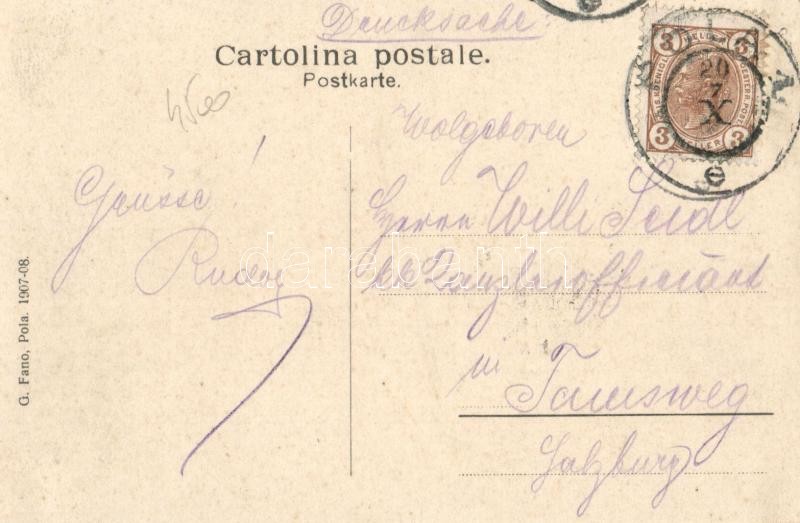 Drucksache
Cartolina postale.
Postkarte.
Wolgeboren
Grüsse!
Herrn Willi Seidl
kk Kanzleiofficiant
in Tamsweg
Salzburg
G. Fano, Pola. 1907-08.
3 HELLER 3
3 HELLER 3
20
7
X
e
darabanth